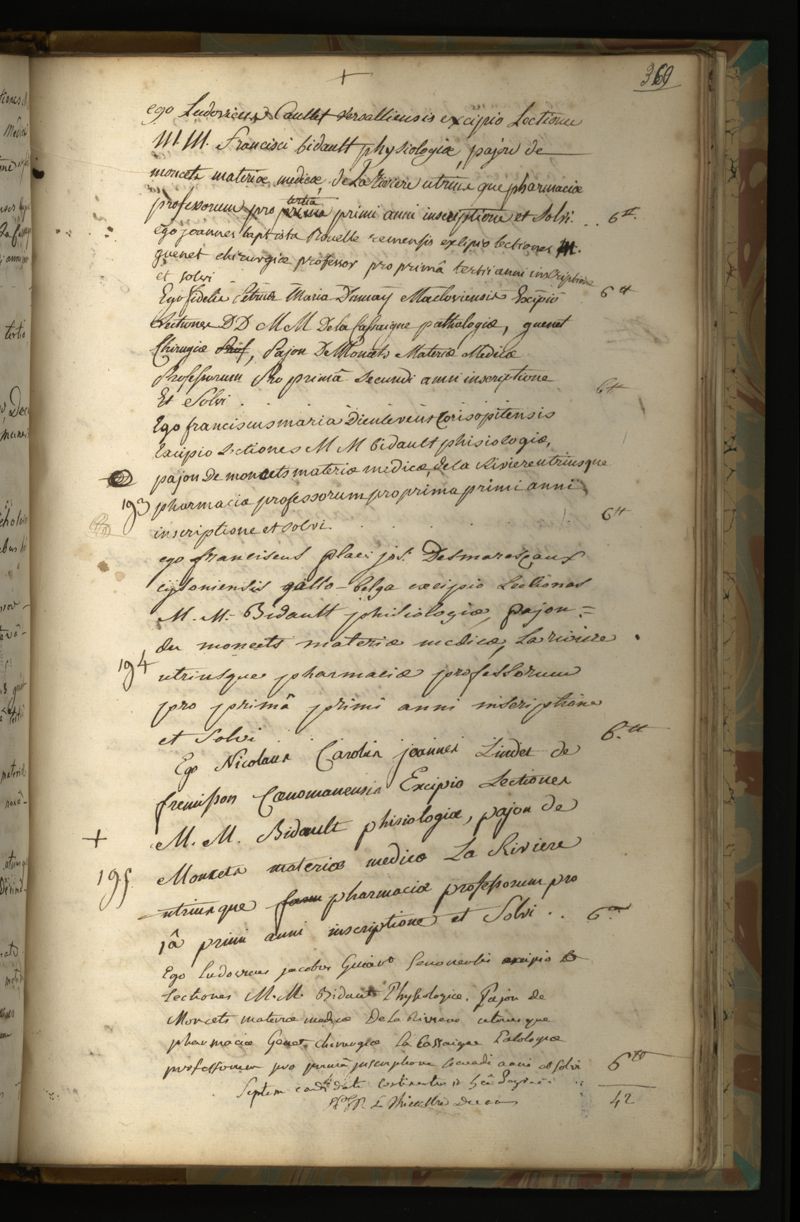 369
ego Ludovicus Caullet versalliensis excipio Lectiones
M.M. Francisci bidault physiologiæ, pajon de
moncets materiæ medicæ de La Riviere utriusque pharmaciæ
professorum pro prima tertia primi anni inscriptione et Solvi .. 6tt
Ego joannes baptista Rouelle remensis excipio lectiones M.
guenet chirurgiæ professor pro primâ tertii anni inscriptione
et solvi 6tt
Ego fidelis Petrus Maria Dumay Macloviensis Excipio
Lectiones DD MM De la Cassaigne pathologiæ, guenet
Chirugiæ Prof, Pajon De Moncets Materiæ Medicæ
Professorum Pro primâ Secundi anni inscriptione
Et Solvi . 6tt
Ego franciscus maria Dieuleveut Corisopitensis
Excipio Lectiones M M bidault phisiologiæ,
pajon De moncets materiæ medicæ, de la Riviere utriusque
193 pharmacia professorum pro prima primi anni
inscriptione et solvi. 6tt
ego franciscus placi jos. Desmaresçaux
gallo-belga excipio Lectiones
M. M. Bidault phisiologiæ, pajon =
du moncets materiæ medicæ, La riviere
194 utriusque pharmaciæ professorum
pro primâ primi anni inscriptione
et Solvi 6.tt
Ego Nicolaus Carolus joannes Lindet de
Cænomanensis Excipio Lectiones
+ M. M. Bidault phisiologiæ, pajon de
195 Moncets materiæ medicæ La Riviere
utriusque pharmaciæ professorum pro
1â primi anni inscriptione et Solvi .. 6tt
Ego Ludovicus jacobus Senonensis excipio
Lectiones M.M. Bidault Physiologiæ. Pajon de
Moncets materiæ medicæ De La Riviere utriusque
pharmaciæ Genet chirurgiæ La Cassaigne Patologiæ
professorum pro primâ inscriptione secundi anni et solvi 6tt
Septem candidati continentur in hâc paginâ
Le Thieullier Decanus 42